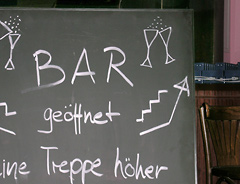 BAR
geöffnet
ine Treppe höher